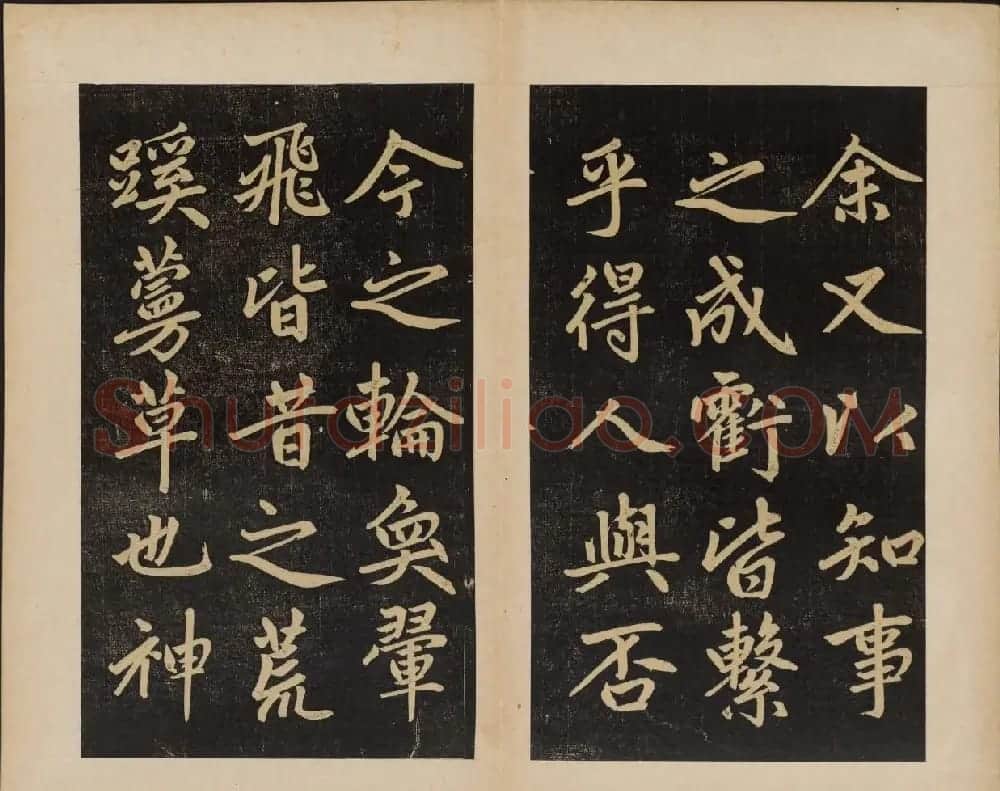 余又以知事
之成虧皆繫
乎得人與否
今之輪奐翬
飛皆昔之荒
蹊蔓草也神
Shufaziliao.COM